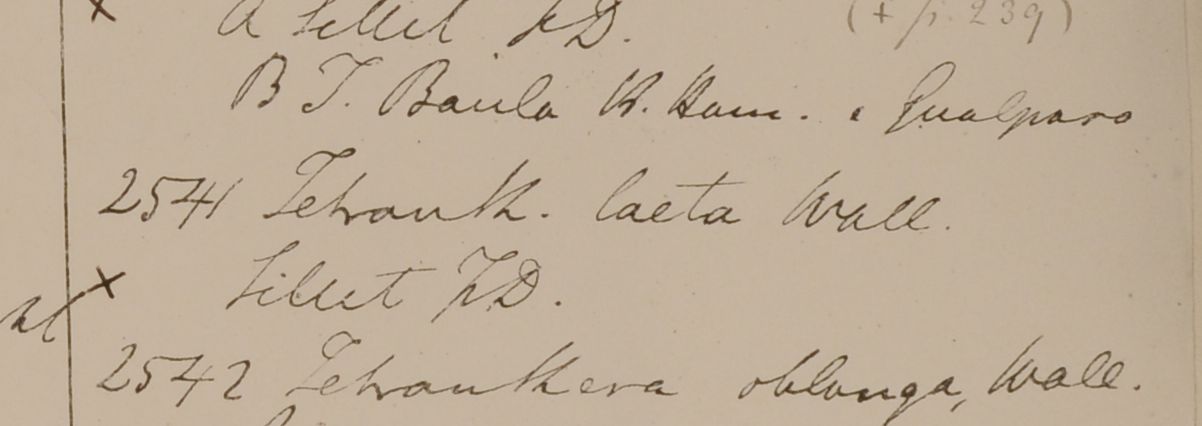 × A Sillet FD. (+ p. 239)
B T. Baula H. Ham. e Gualpara
2541 Tetranth. laeta Wall.
× Sillet FD.
2542 Tetranthera oblonga, Wall.